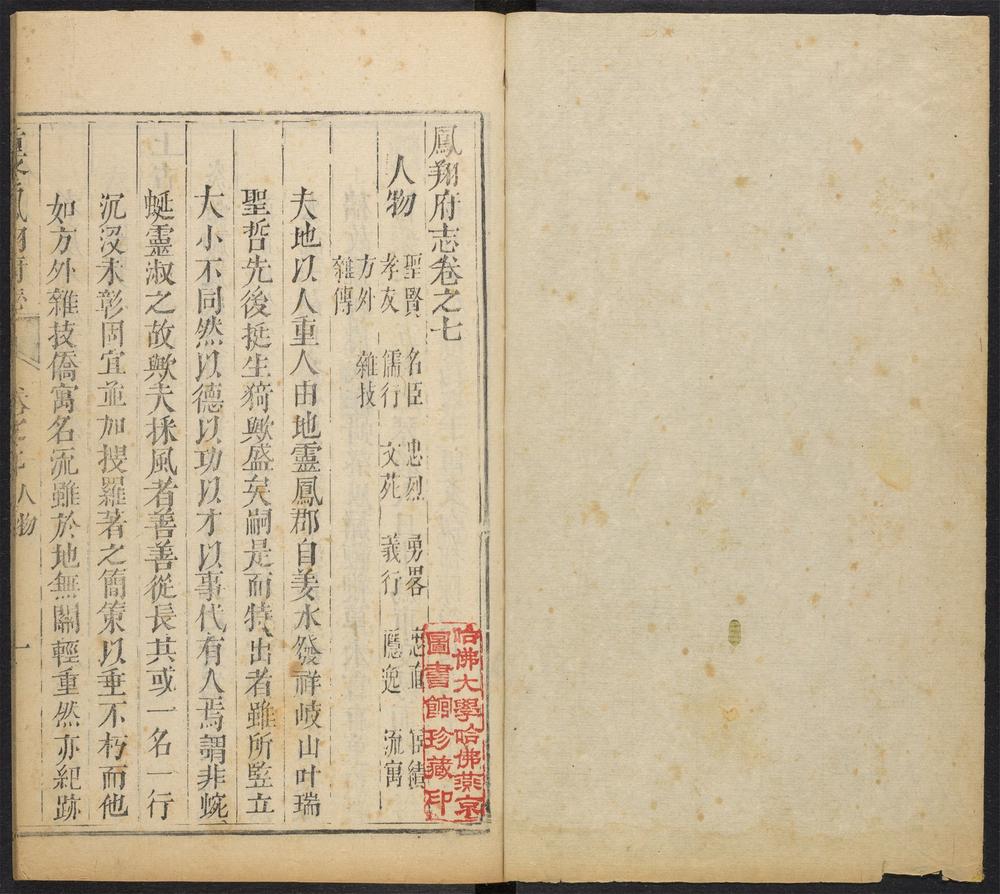 鳳翔府志卷之七
人物
聖賢 名臣 忠烈 勇畧 宦績
孝友 儒行 文苑 義行 隱逸 流寓
方外 雜技
雜傳
夫地以人重人由地靈鳳郡自姜水發祥岐山叶瑞
聖哲先後挺生猗歟盛矣嗣是而特出者雖所竪立
大小不同然以德以功以才以事代有人焉謂非蜿
蜒靈淑之故歟夫採風者善善從長其或一名一行
沉没未彰固宜並加搜羅著之簡策以垂不朽而他
如方外雜技僑寓名流雖於地無關輕重然亦紀跡
重修鳳翔府志 卷之七 人物 一
哈佛大學哈佛燕京
圖書館珍藏印